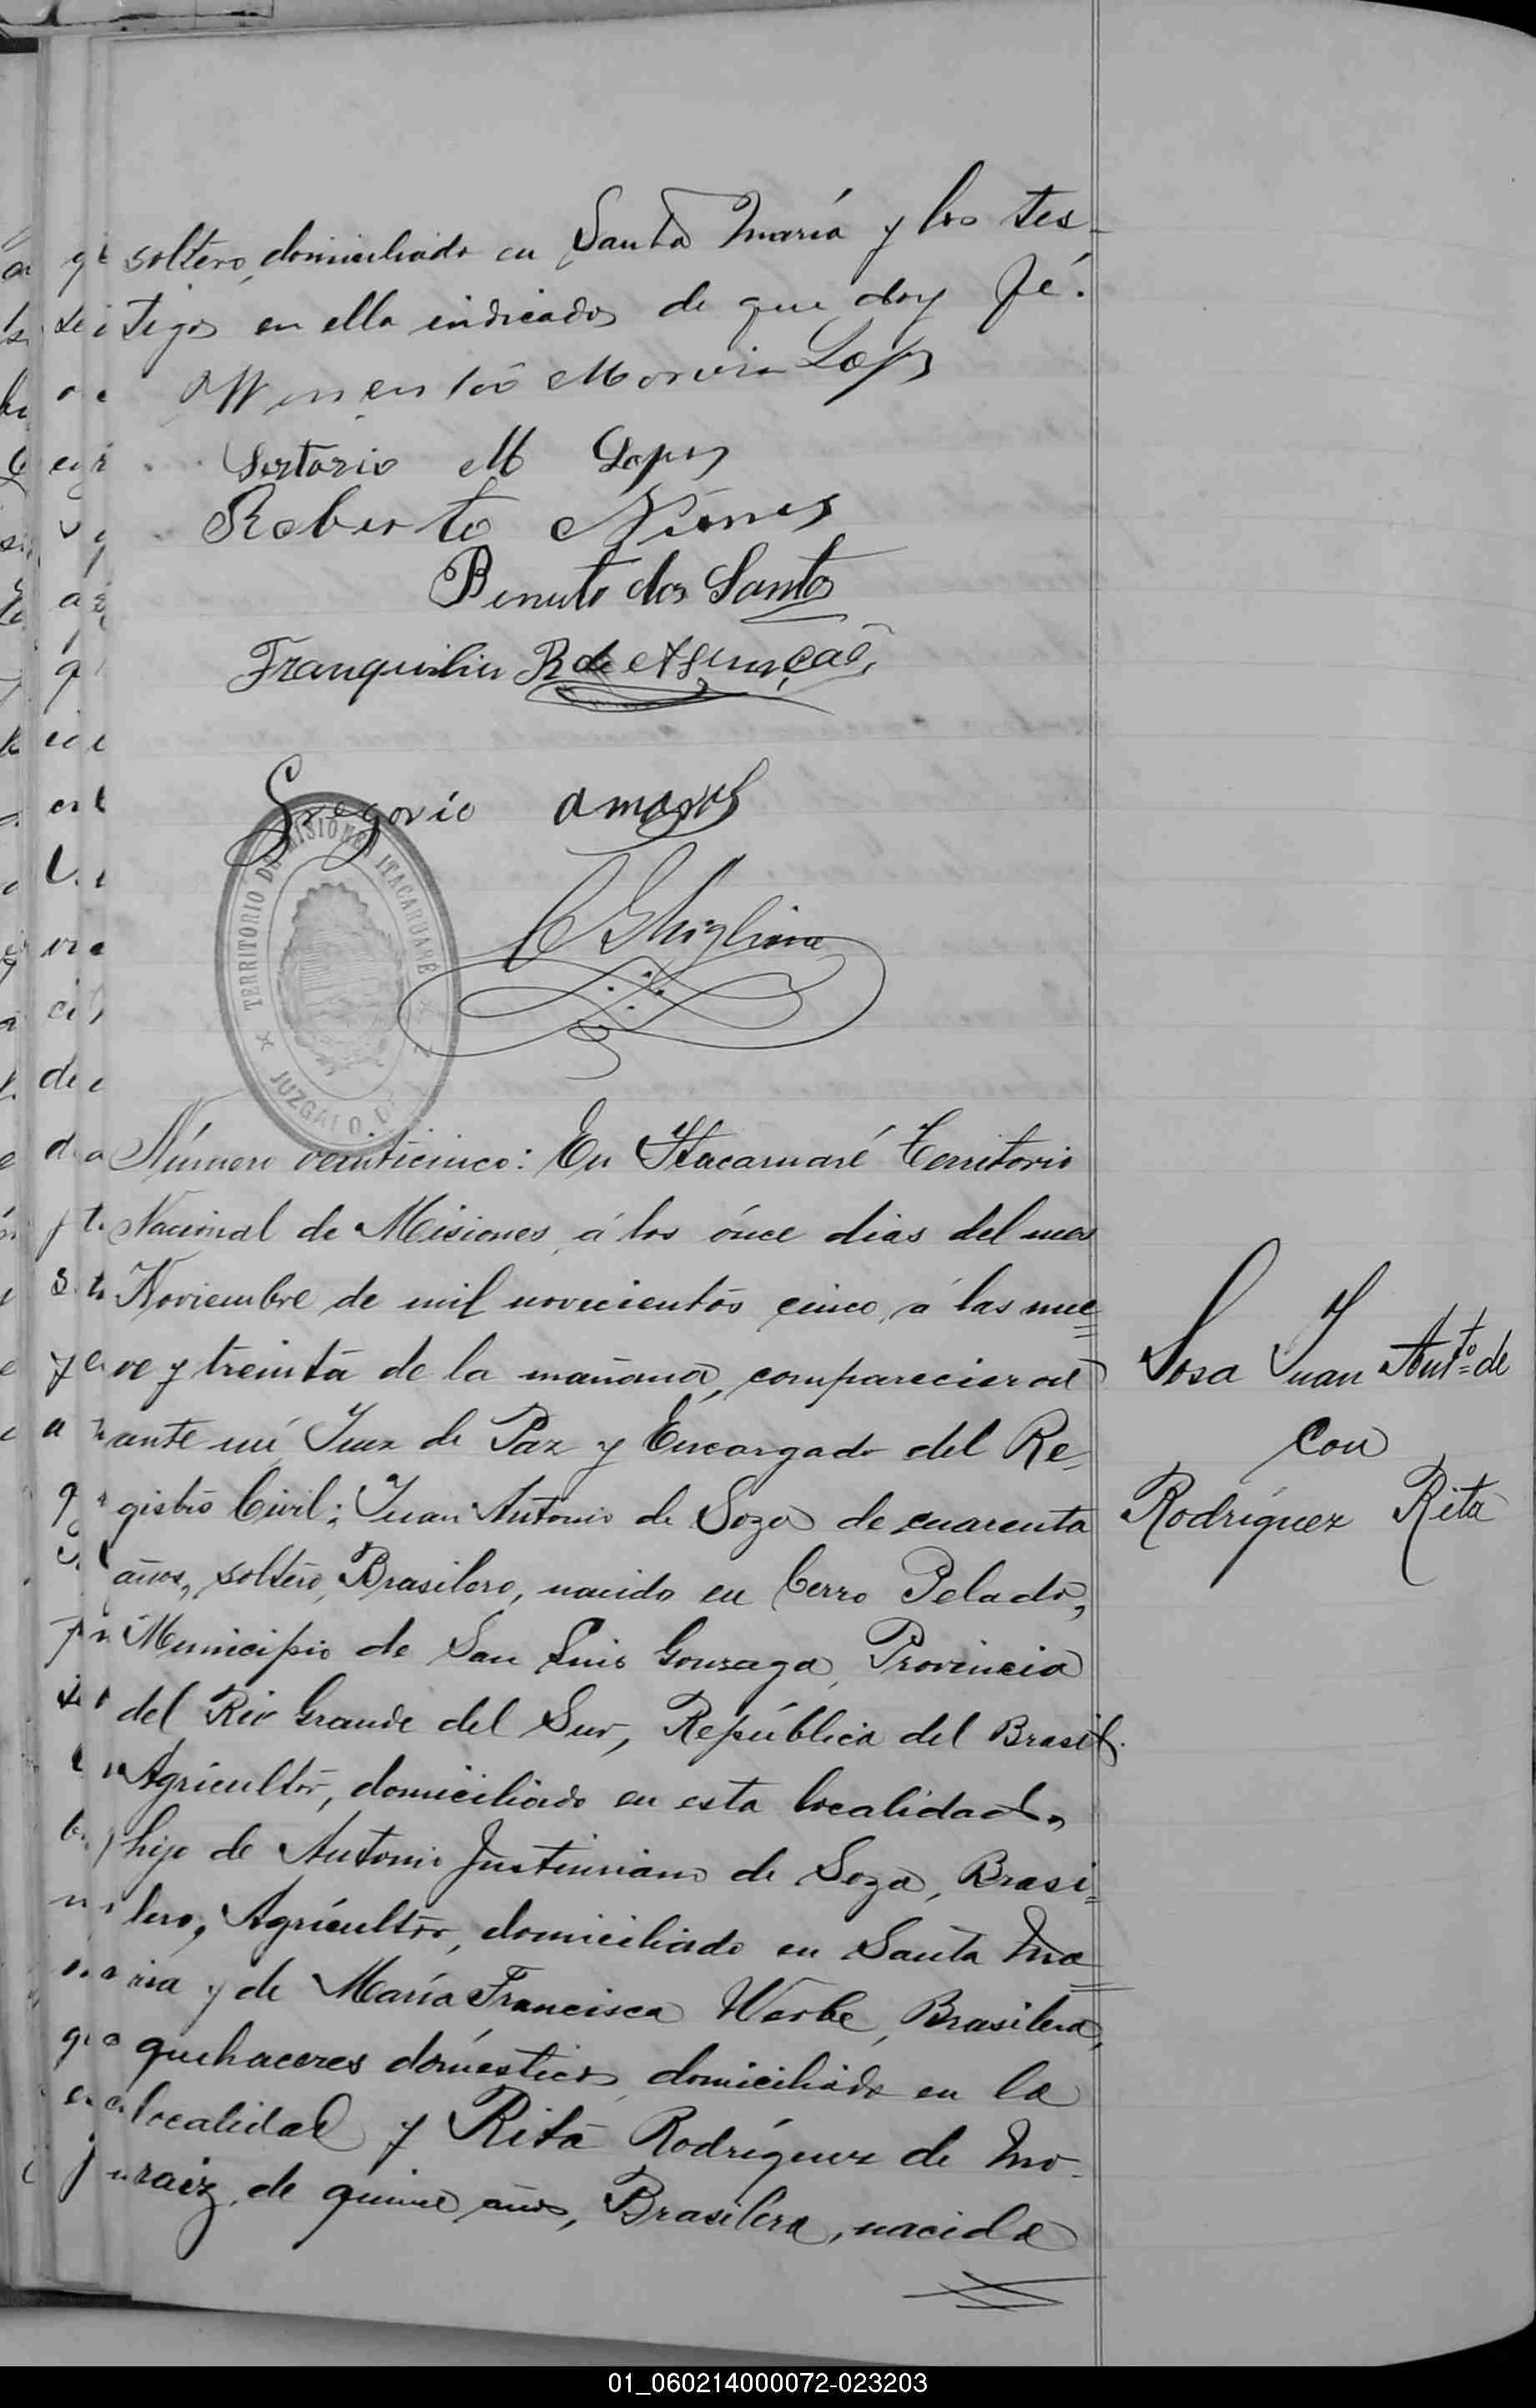 soltero, domiciliado en Santa María y los tes-
tigos en ella indicados de que doy fé.
Lopes
Sertorio M Lopes
Roberto Nunes
Benuto dos Santos
Franquilin R de Asunçaõ
Gregorio amaral
C Ghiglione
TERRITORIO DE MISIONES ITACARUARÉ
JUZGADO DE
Número veinticinco: En Itacaruaré Territorio
Nacional de Misiones, á los ónce dias del mes
Noviembre de mil novecientos cinco, á las nue
ve y treinta de la mañana, comparecieron
ante mi Juez de Paz y Encargado del Re-
gistro Civil; Juan Antonio de Soza de cuarenta
años, soltero, Brasilero, nacido en Cerro Pelado,
Municipio de San Luis Gonzaga, Provincia
del Rio Grande del Sur, República del Brasil.
Agricultor, domiciliado en esta localidad,
hijo de Antonio Justiniano de Soza, Brasi=
lero, Agricultor, domiciliado en Santa Ma
ria y de María Francisca Werbe, Brasilera,
quehaceres domésticos, domiciliada en la
localidad y Rita Rodríguez de Mo-
raiz, de quince años, Brasilera, nacida
Sosa Juan Antº de
con
Rodríguez Rita
01_060214000072-023203